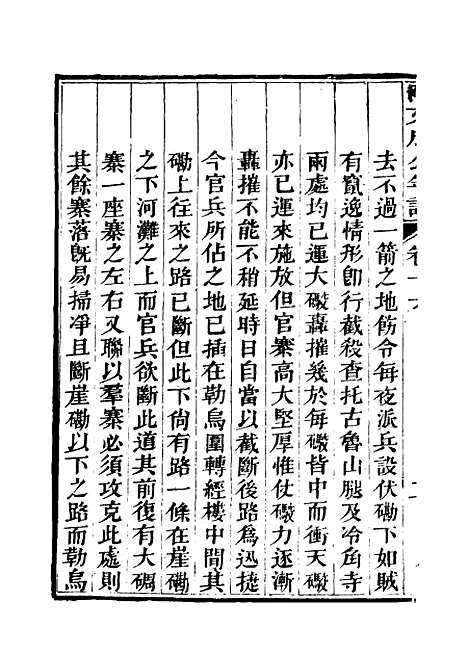 去不過一箭之地飭令每夜派兵設伏磡下如賊
有竄逸情形卽行截殺查托古魯山腿及冷角寺
兩處均已運大礮轟摧幾於每礮皆中而衝天礮
亦已運來施放但官寨高大堅厚惟仗礮力逐漸
轟摧不能不稍延時日自當以截斷後路爲迅捷
今官兵所佔之地已插在勒烏圍轉經樓中間其
磡上往來之路已斷但此下尙有路一條在崖磡
之下河灘之上而官兵欲斷此道其前復有大碉
寨一座寨之左右又聯以羣寨必須攻克此處則
其餘寨落旣易掃凈且斷崖磡以下之路而勒烏